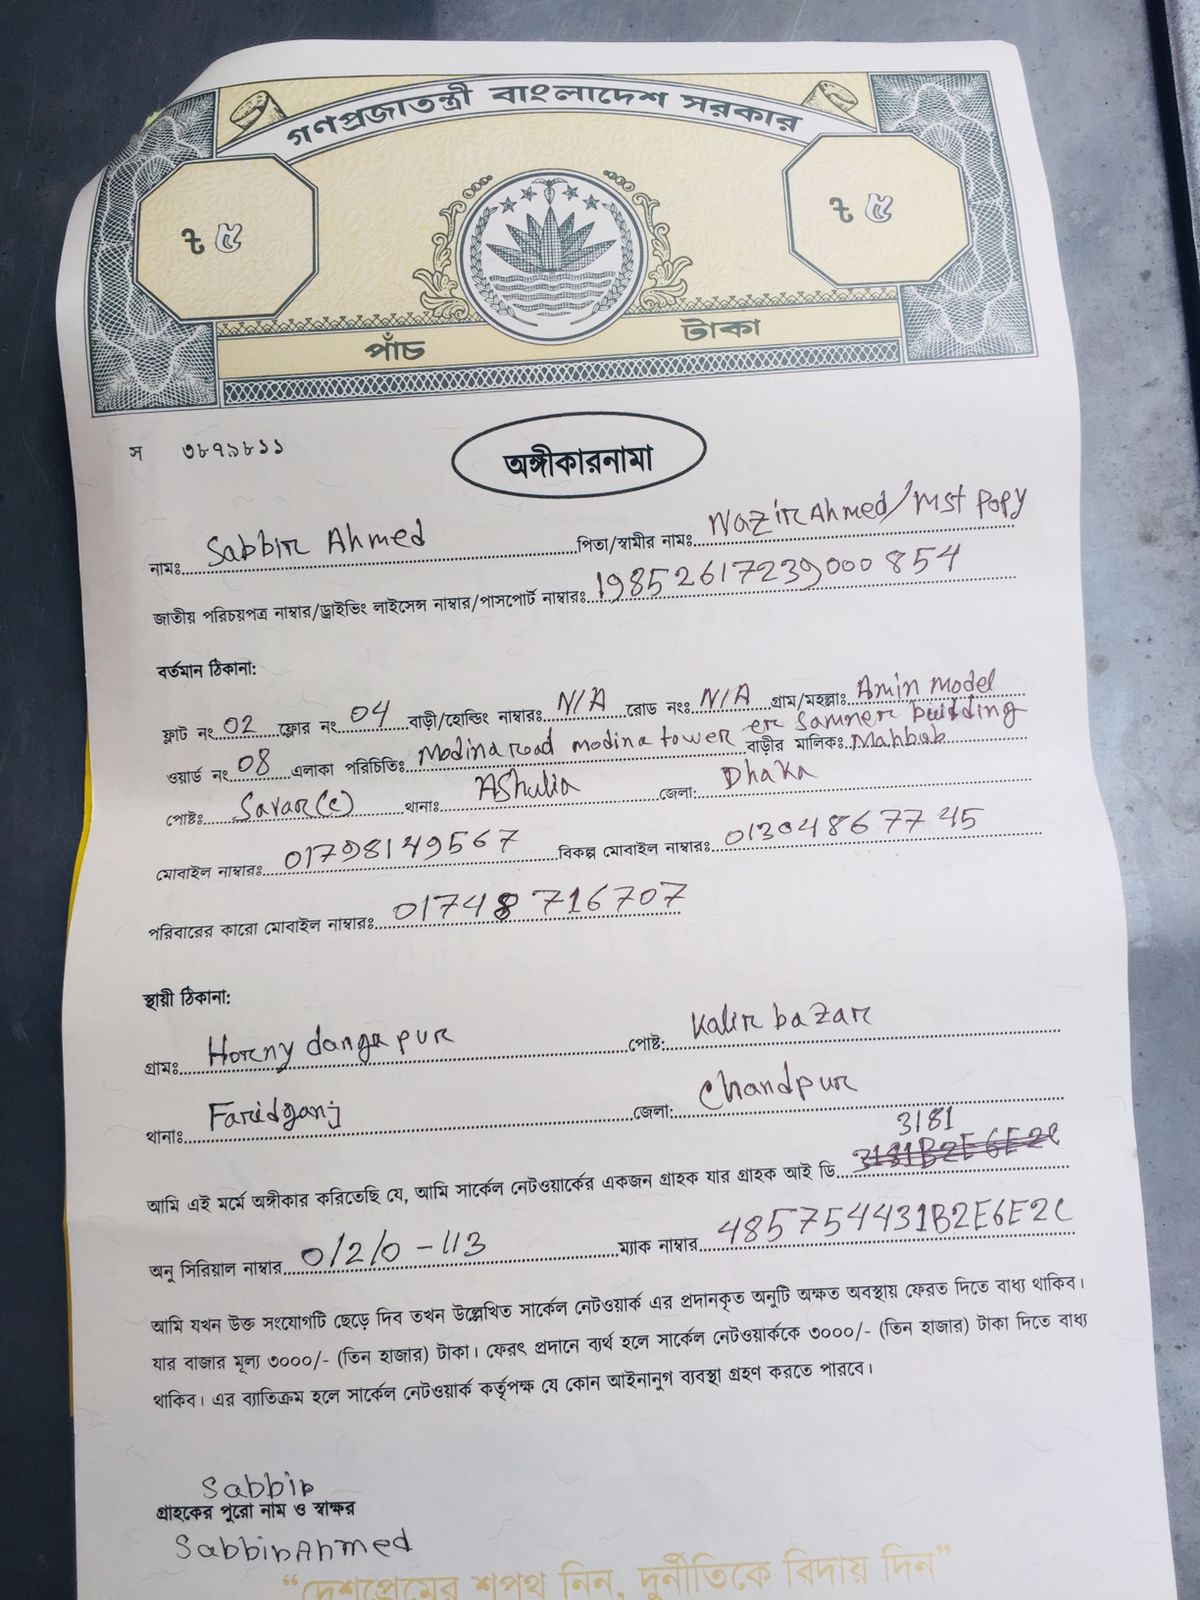 গণপ্রজাতন্ত্রী বাংলাদেশ সরকার
৳ ৫ ৳ ৫
পাঁচ টাকা
স ৩৮৭৯৮১১
অঙ্গীকারনামা
নামঃ Sabbir Ahmed পিতা/স্বামীর নামঃ Nazir Ahmed/Mst Popy
জাতীয় পরিচয়পত্র নাম্বার/ড্রাইভিং লাইসেন্স নাম্বার/পাসপোর্ট নাম্বারঃ 19852617239000854
বর্তমান ঠিকানা:
ফ্লাট নং 02 ফ্লোর নং 04 বাড়ী/হোল্ডিং নাম্বারঃ N/A রোড নংঃ N/A গ্রাম/মহল্লাঃ Amin Model
ওয়ার্ড নং 08 এলাকা পরিচিতিঃ Modina road modina tower er Samner building বাড়ীর মালিকঃ Mahbub
পোষ্টঃ Savar(c) থানাঃ Ashulia জেলা: Dhaka
মোবাইল নাম্বারঃ 01798149567 বিকল্প মোবাইল নাম্বারঃ 01304867745
পরিবারের কারো মোবাইল নাম্বারঃ 01748716707
স্থায়ী ঠিকানা:
গ্রামঃ Horny dangapur পোষ্ট: Kalir bazar
থানাঃ Faridganj জেলা: Chandpur
3181
আমি এই মর্মে অঙ্গীকার করিতেছি যে, আমি সার্কেল নেটওয়ার্কের একজন গ্রাহক যার গ্রাহক আই ডি
অনু সিরিয়াল নাম্বার 0/2/0-113 ম্যাক নাম্বার 485754431B2E6E2C
আমি যখন উক্ত সংযোগটি ছেড়ে দিব তখন উল্লেখিত সার্কেল নেটওয়ার্ক এর প্রদানকৃত অনুটি অক্ষত অবস্থায় ফেরত দিতে বাধ্য থাকিব।
যার বাজার মূল্য ৩০০০/- (তিন হাজার) টাকা। ফেরৎ প্রদানে ব্যর্থ হলে সার্কেল নেটওয়ার্ককে ৩০০০/- (তিন হাজার) টাকা দিতে বাধ্য
থাকিব। এর ব্যাতিক্রম হলে সার্কেল নেটওয়ার্ক কর্তৃপক্ষ যে কোন আইনানুগ ব্যবস্থা গ্রহণ করতে পারবে।
Sabbir
গ্রাহকের পুরো নাম ও স্বাক্ষর
Sabbir Ahmed
“দেশপ্রেমের শপথ নিন, দুর্নীতিকে বিদায় দিন”